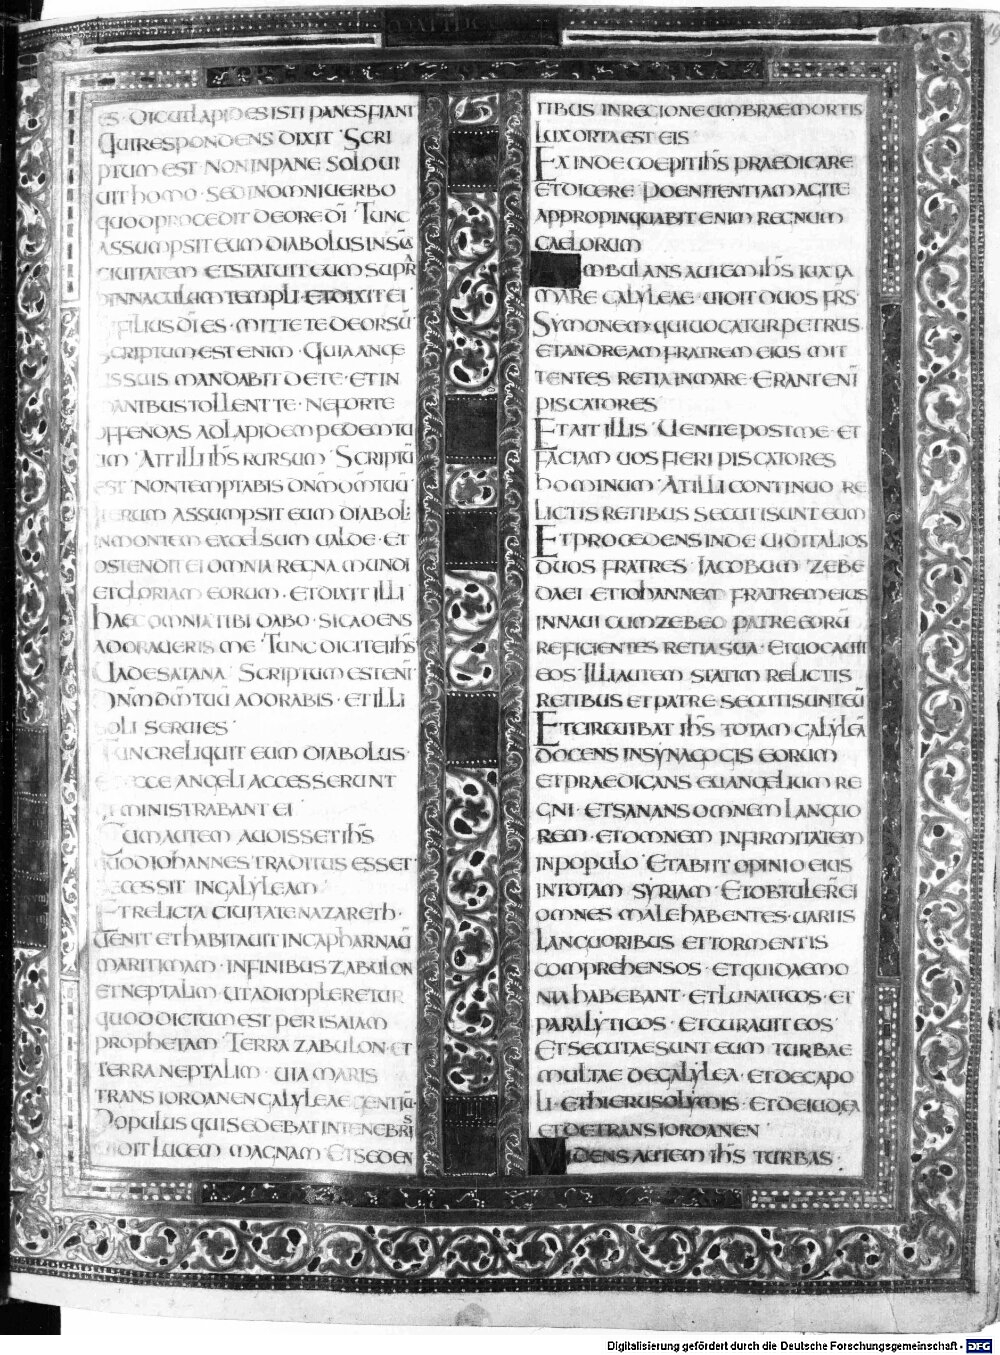 ES · DIC UT LAPIDES ISTI PANES FIANT
QUI RESPONDENS DIXIT · SCRI
PTUM EST · NON IN PANE SOLO UI
UIT HOMO · SED IN OMNI UERBO
QUOD PROCEDIT DE ORE DĪ · TUNC
ASSUMPSIT EUM DIABOLUS IN SCĀ
CIUITATEM · ET STATUIT EUM SUPRA
PINNACULUM TEMPLI · ET DIXIT EI
SI FILIUS DĪ ES · MITTE TE DEORSŪ
SCRIPTUM EST ENIM · QUIA ANGE
LIS SUIS MANDABIT DE TE · ET IN
MANIBUS TOLLENT TE · NE FORTE
OFFENDAS AD LAPIDEM PEDEM TU
UM · AIT ILLI IHS RURSUM · SCRIPTŪ
EST · NON TEMPTABIS DNM DM TUŪ
ITERUM ASSUMPSIT EUM DIABOL:
IN MONTEM EXCELSUM UALDE · ET
OSTENDIT EI OMNIA REGNA MUNDI
ET GLORIAM EORUM · ET DIXIT ILLI
HAEC OMNIA TIBI DABO · SI CADENS
ADORAUERIS ME · TUNC DICIT EI IHS
UADE SATANA · SCRIPTUM EST ENĪ
DNM DM TUŪ ADORABIS · ET ILLI
SOLI SERUIES ·
TUNC RELIQUIT EUM DIABOLUS ·
ET ECCE ANGELI ACCESSERUNT
ET MINISTRABANT EI ·
CUM AUTEM AUDISSET IHS
QUOD IOHANNES TRADITUS ESSET
SECESSIT IN GALYLEAM
ET RELICTA CIUITATE NAZARETH ·
UENIT ET HABITAUIT IN CAPHARNAŪ
MARITIMAM · IN FINIBUS ZABULON
ET NEPTALIM · UT ADIMPLERETUR
QUOD DICTUM EST PER ISAIAM
PROPHETAM · TERRA ZABULON · ET
TERRA NEPTALIM · UIA MARIS
TRANS IORDANEN GALYLEAE GENTIŪ ·
POPULUS QUI SEDEBAT IN TENEBRIS
UIDIT LUCEM MAGNAM · ET SEDEN
TIBUS IN REGIONE UMBRAE MORTIS
LUX ORTA EST EIS ·
EXINDE COEPIT IHS PRAEDICARE
ET DICERE · POENITENTIAM AGITE
APPROPINQUABIT ENIM REGNUM
CAELORUM
AMBULANS AUTEM IHS IUXTA
MARE GALYLEAE · UIDIT DUOS FRS ·
SYMONEM · QUI UOCATUR PETRUS ·
ET ANDREAM FRATREM EIUS MIT
TENTES RETIA IN MARE · ERANT ENĪ
PISCATORES
ET AIT ILLIS · UENITE POST ME · ET
FACIAM UOS FIERI PISCATORES
HOMINUM · AT ILLI CONTINUO RE
LICTIS RETIBUS SECUTI SUNT EUM
ET PROCEDENS INDE UIDIT ALIOS
DUOS FRATRES · IACOBUM ZEBE
DAEI ET IOHANNEM FRATREM EIUS
IN NAUI CUM ZEBEO PATRE EORŪ
REFICIENTES RETIA SUA · ET UOCAUIT
EOS · ILLI AUTEM STATIM RELICTIS
RETIBUS ET PATRE SECUTI SUNT EŪ
ET CIRCUIBAT IHS TOTAM GALYLEĀ
DOCENS IN SYNAGOGIS EORUM
ET PRAEDICANS EUANGELIUM RE
GNI · ET SANANS OMNEM LANGUO
REM · ET OMNEM INFIRMITATEM
IN POPULO · ET ABIIT OPINIO EIUS
IN TOTAM SYRIAM · ET OBTULER̄ EI
OMNES MALE HABENTES · UARIIS
LANGUORIBUS ET TORMENTIS
COMPREHENSOS · ET QUI DAEMO
NIA HABEBANT · ET LUNATICOS · ET
PARALYTICOS · ET CURAUIT EOS ·
ET SECUTAE SUNT EUM TURBAE
MULTAE DE GALYLEA · ET DE CAPO
LI · ET HIERUSOLYMIS · ET DE IUDEA
ET DE TRANS IORDANEN ·
VIDENS AUTEM IHS TURBAS ·
Digitalisierung gefördert durch die Deutsche Forschungsgemeinschaft - DFG